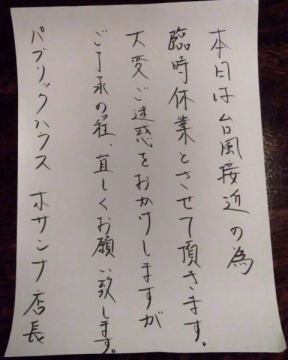 本日は台風接近の為
臨時休業とさせて頂きます。
大変ご迷惑をおかけしますが
ご了承の程、宜しくお願い致します。
パブリックハウス ホサンナ店長